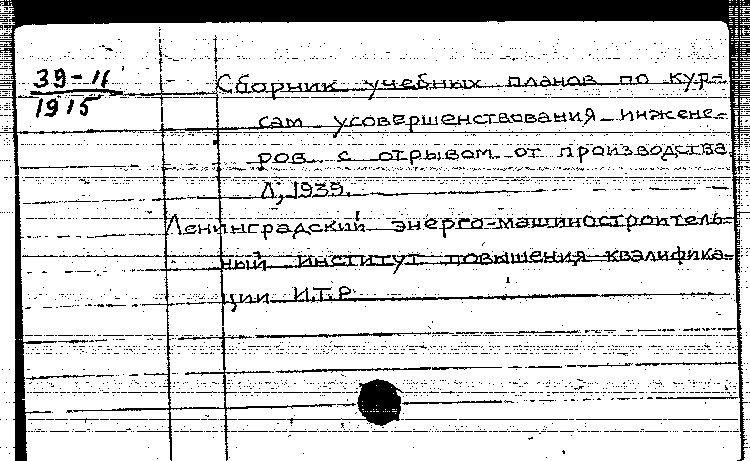 39-11
1915
Сборник учебных планов по кур-
сам усовершенствования инжене-
ров с отрывом от производства
Л, 1939.
Ленинградский энерго-машиностроитель-
ный институт повышения квалифика-
ции И.Т.Р.